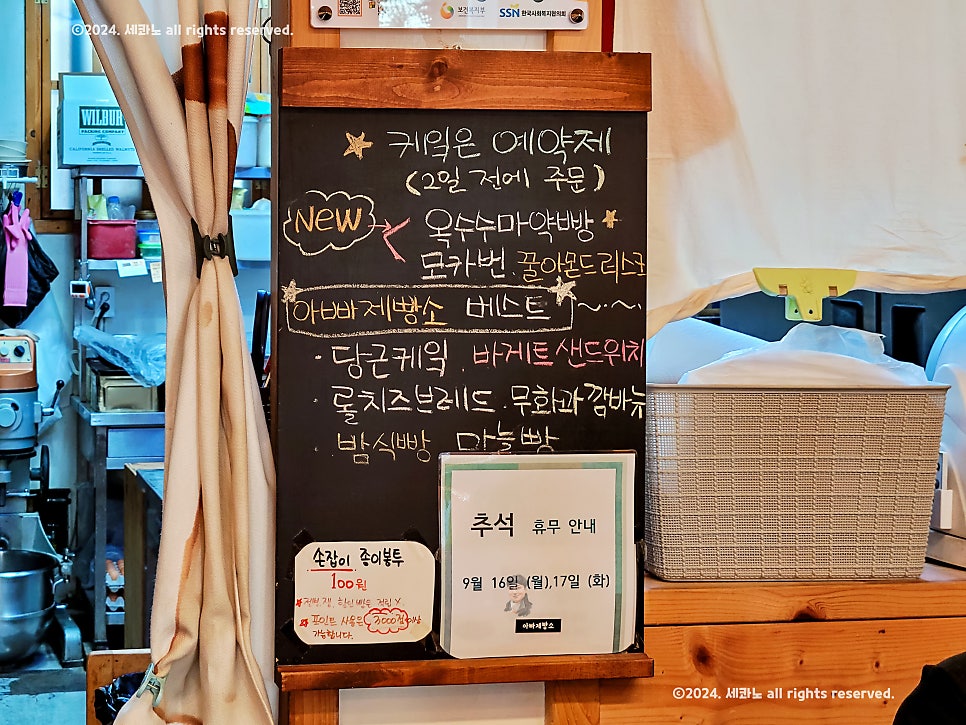 ©2024. 세콰노 all rights reserved.
보건복지부 SSN 한국사회복지협의회
WILBUR
PACKING COMPANY
CALIFORNIA SHELLED WALNUTS
케익은 예약제
(2일 전에 주문)
NEW 옥수수마약빵
모카번. 꿀아몬드리스코
아빠제빵소 베스트 ~.~.
· 당근케익. 바게트샌드위치
· 롤치즈브레드. 무화과깜바뉴
· 밤식빵 마늘빵
추석 휴무 안내
9월 16일 (월),17일 (화)
아빠제빵소
손잡이 종이봉투
100원
포인트 사용은 3000점이상
가능합니다.
©2024. 세콰노 all rights reserved.